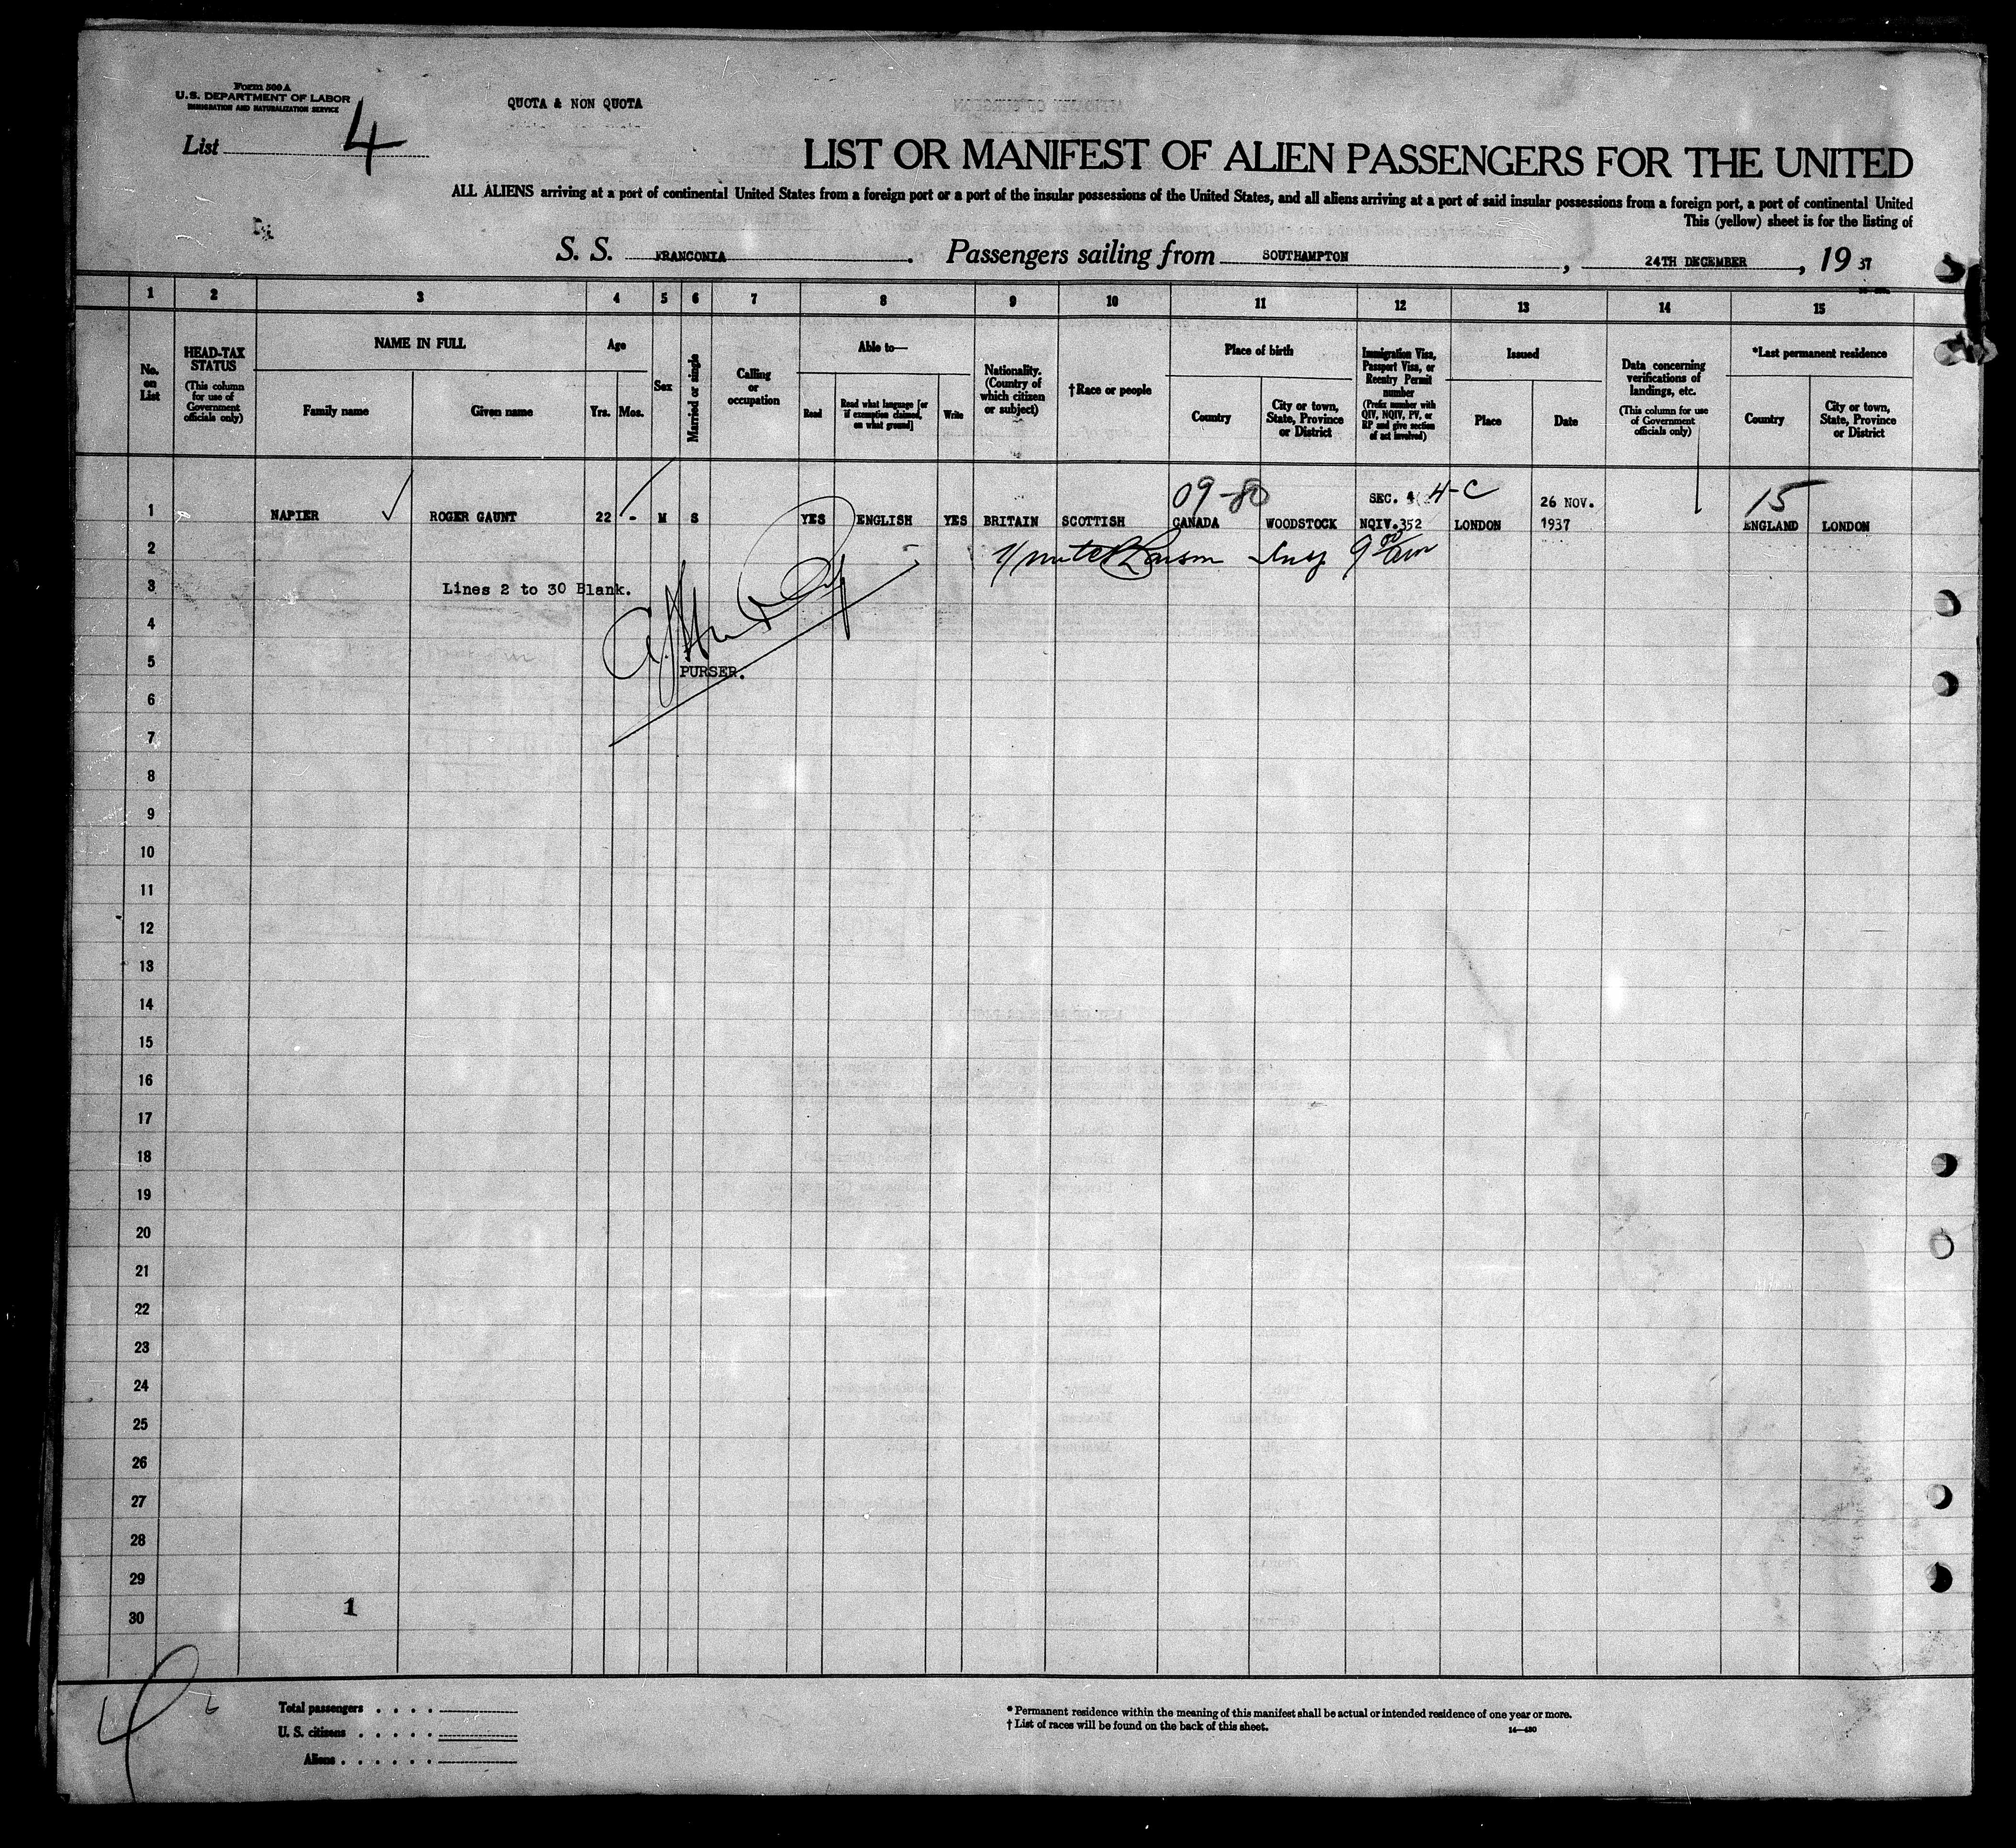 Form 500 A
U.S. DEPARTMENT OF LABOR
IMMIGRATION AND NATURALIZATION SERVICE
QUOTA & NON QUOTA
List 4
LIST OR MANIFEST OF ALIEN PASSENGERS FOR THE UNITED
ALL ALIENS arriving at a port of continental United States from a foreign port or a port of the insular possessions of the United States, and all aliens arriving at a port of said insular possessions from a foreign port, a port of continental United
This (yellow) sheet is for the listing of
S. S. FRANCONIA. Passengers sailing from SOUTHAMPTON, 24TH DECEMBER, 19 37
1 2 3 4 5 6 7 8 9 10 11 12 13 14 15
No. on List
HEAD-TAX STATUS
(This column for use of Government officials only)
NAME IN FULL
Family name
Given name
Age
Yrs. Mos.
Sex
Married or single
Calling or occupation
Able to—
Read
Read what language [or if exemption claimed, on what ground]
Write
Nationality. (Country of which citizen or subject)
†Race or people
Place of birth
Country
City or town, State, Province or District
Immigration Visa, Passport Visa, or Reentry Permit number
(Prefix number with QIV, NQIV, PV, or RP and give section of act involved)
Issued
Place
Date
Data concerning verifications of landings, etc.
(This column for use of Government officials only)
*Last permanent residence
Country
City or town, State, Province or District
09-80 SEC. 4 4-C 26 NOV. 15
1 NAPIER ROGER GAUNT 22 - M S YES ENGLISH YES BRITAIN SCOTTISH CANADA WOODSTOCK NQIV.352 LONDON 1937 ENGLAND LONDON
2
3 Lines 2 to 30 Blank.
4
5
PURSER.
6
7
8
9
10
11
12
13
14
15
16
17
18
19
20
21
22
23
24
25
26
27
28
29
30 1
Total passengers . . . .
U. S. citizens . . . . .
Aliens . . . . . .
* Permanent residence within the meaning of this manifest shall be actual or intended residence of one year or more.
† List of races will be found on the back of this sheet.
14—430